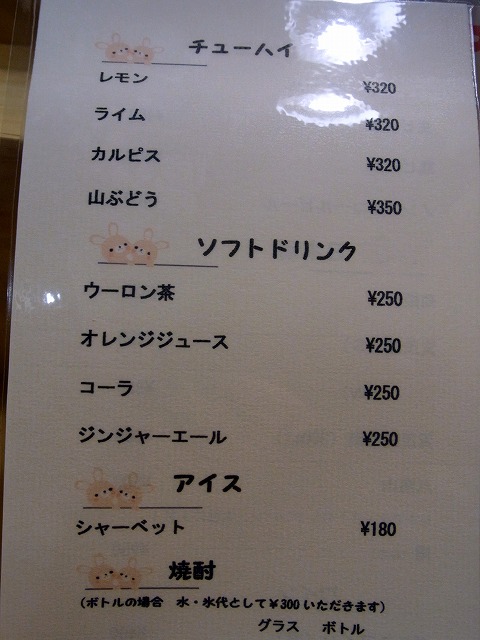 チューハイ
レモン ¥320
ライム ¥320
カルピス ¥320
山ぶどう ¥350
ソフトドリンク
ウーロン茶 ¥250
オレンジジュース ¥250
コーラ ¥250
ジンジャーエール ¥250
アイス
シャーベット ¥180
焼酎
(ボトルの場合 水・氷代として¥300いただきます)
グラス ボトル